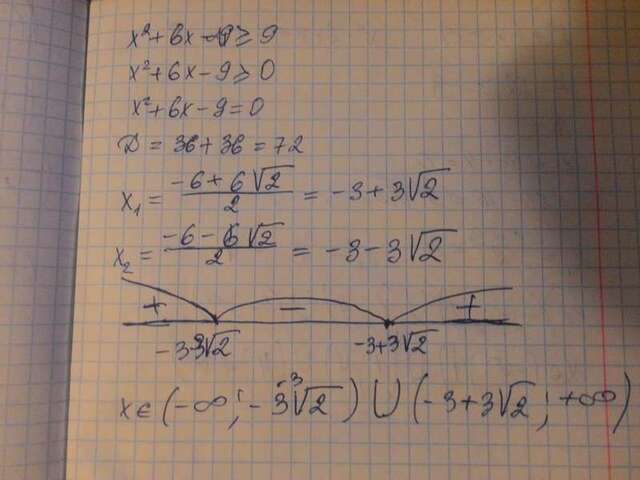 x² + 6x ≥ 9
x² + 6x - 9 ≥ 0
x² + 6x - 9 = 0
D = 36 + 36 = 72
x₁ = (-6 + 6√2)/2 = -3 + 3√2
x₂ = (-6 - 6√2)/2 = -3 - 3√2
+ - +
-3-3√2 -3+3√2
x ∈ (-∞; -3-3√2) ∪ (-3+3√2; +∞)